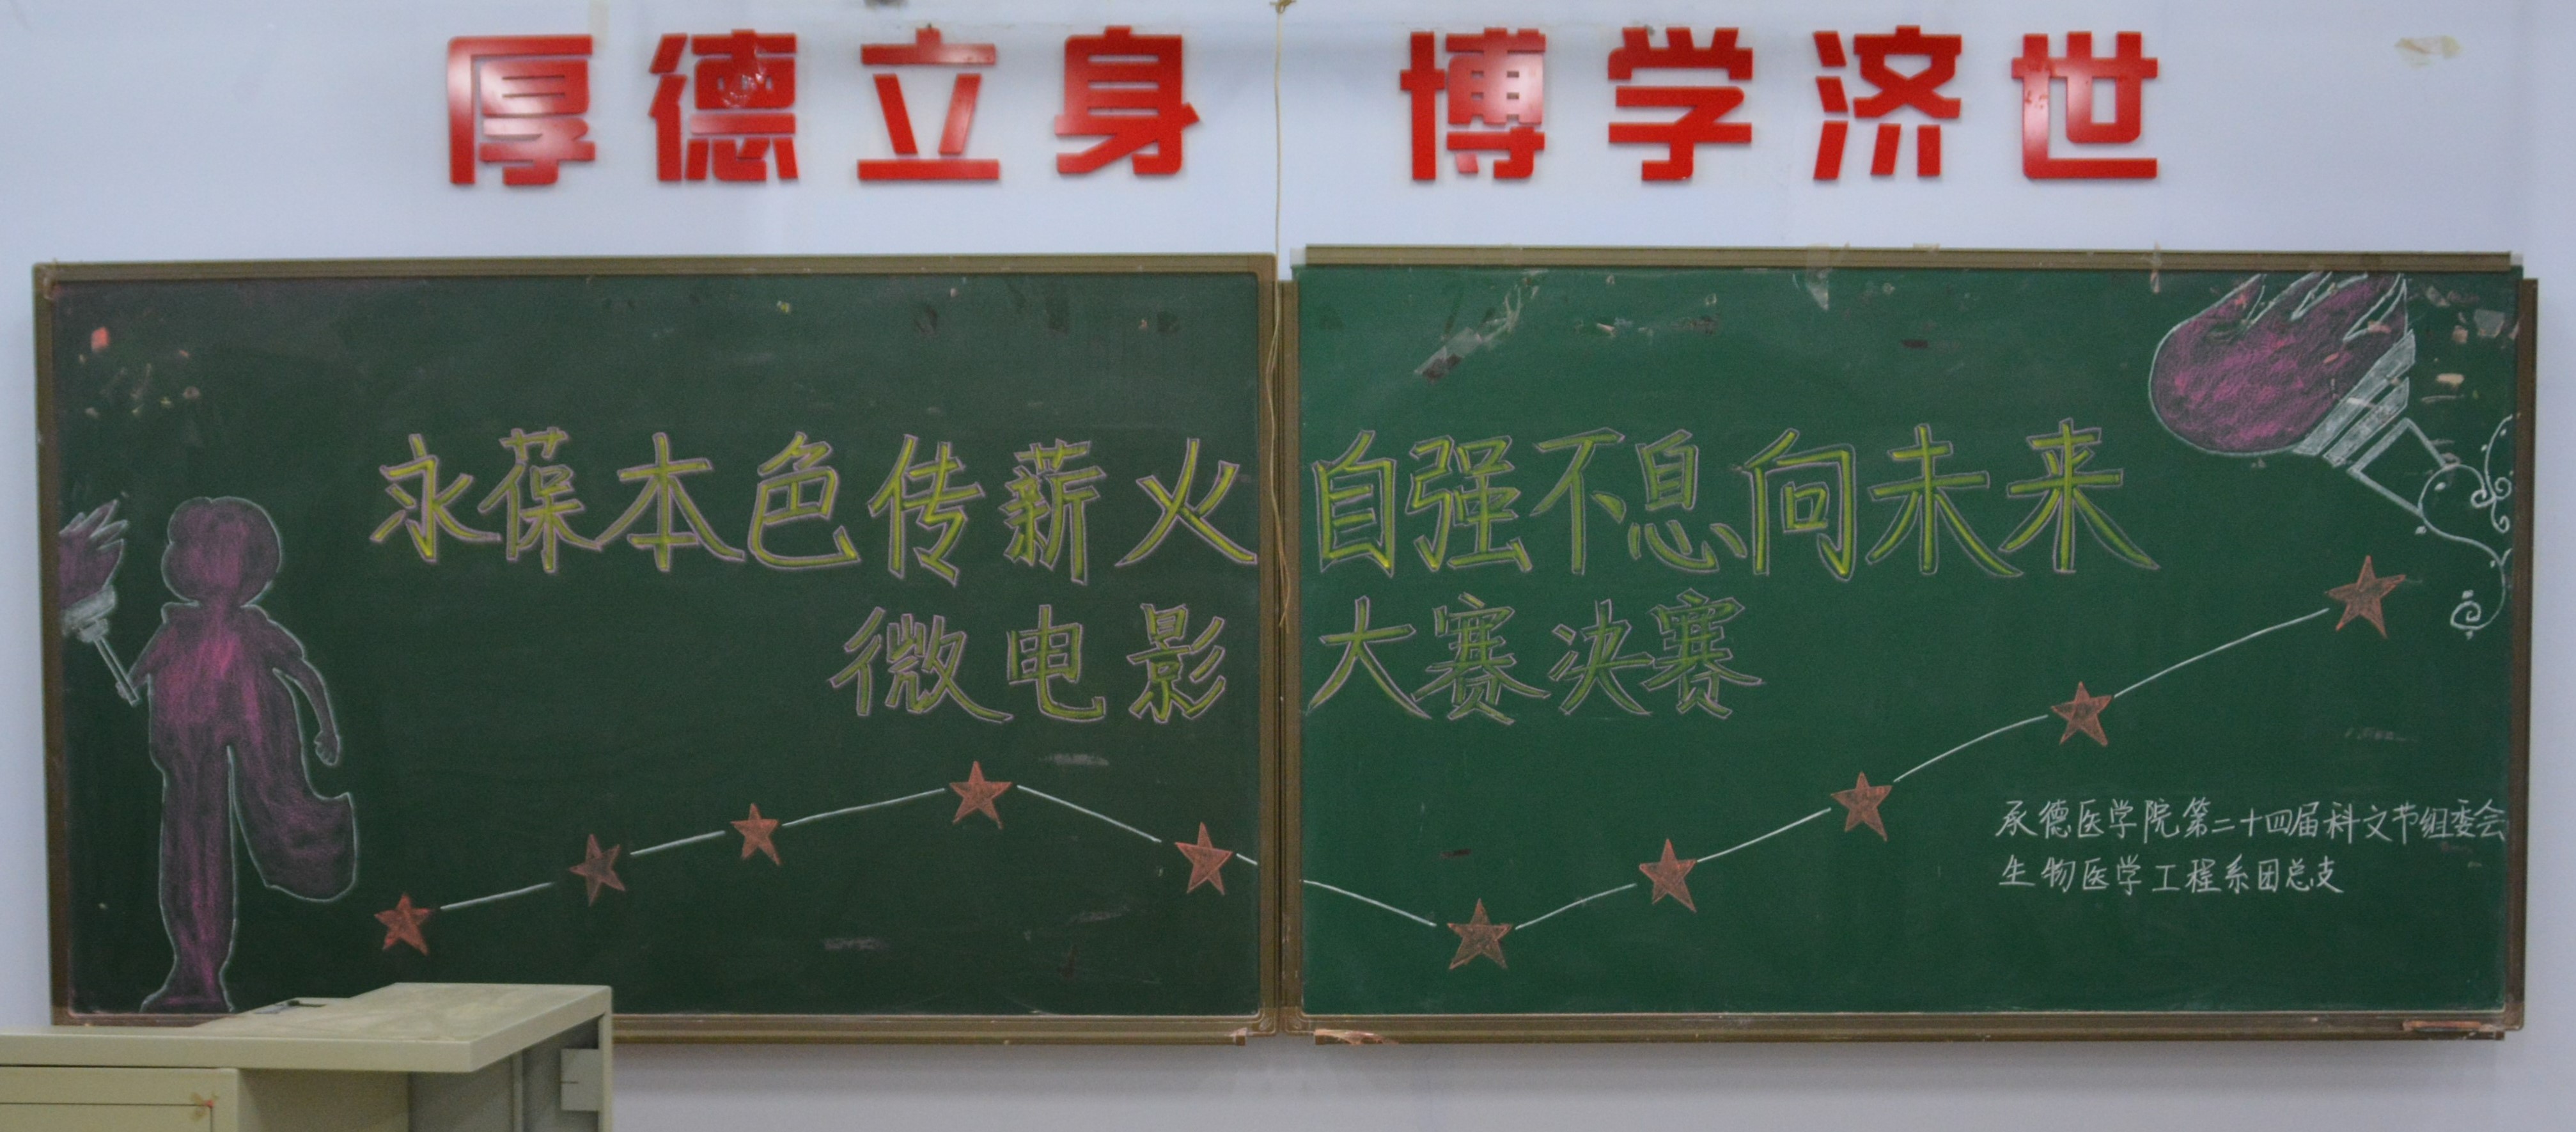 厚德立身 博学济世
永葆本色传薪火 自强不息向未来
微电影大赛决赛
承德医学院第二十四届科文节组委会
生物医学工程系团总支